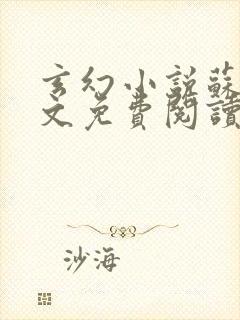 玄幻小說蘇
文免費閱讀
沙海